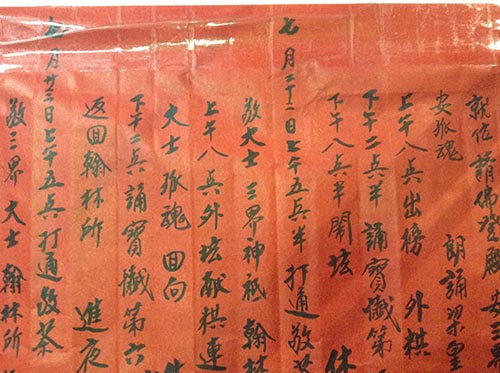 就位 請佛登
安孤魂 朗誦梁皇
上午八奌出榜 外
下午二奌半 誦寶懺第
下午八奌半 鬧坛 休
七月二十二日上午五奌半 打通敬
敬大士 三界神祗 翰林
上午八奌外坛献 連
大士 孤魂 回向
下午二奌 誦寶懺第六
返回翰林所 進夜
七月廿三日上午五奌打通敬茶
敬三界 大士 翰林所